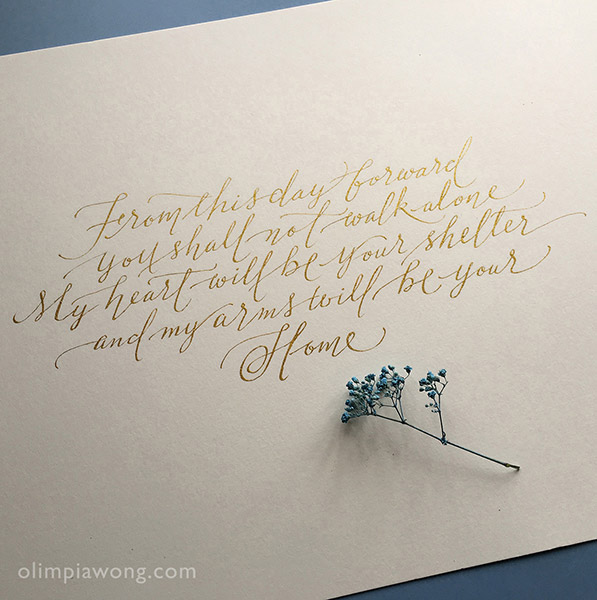 From this day forward
you shall not walk alone
My heart will be your shelter
and my arms will be your
Home
olimpiawong.com